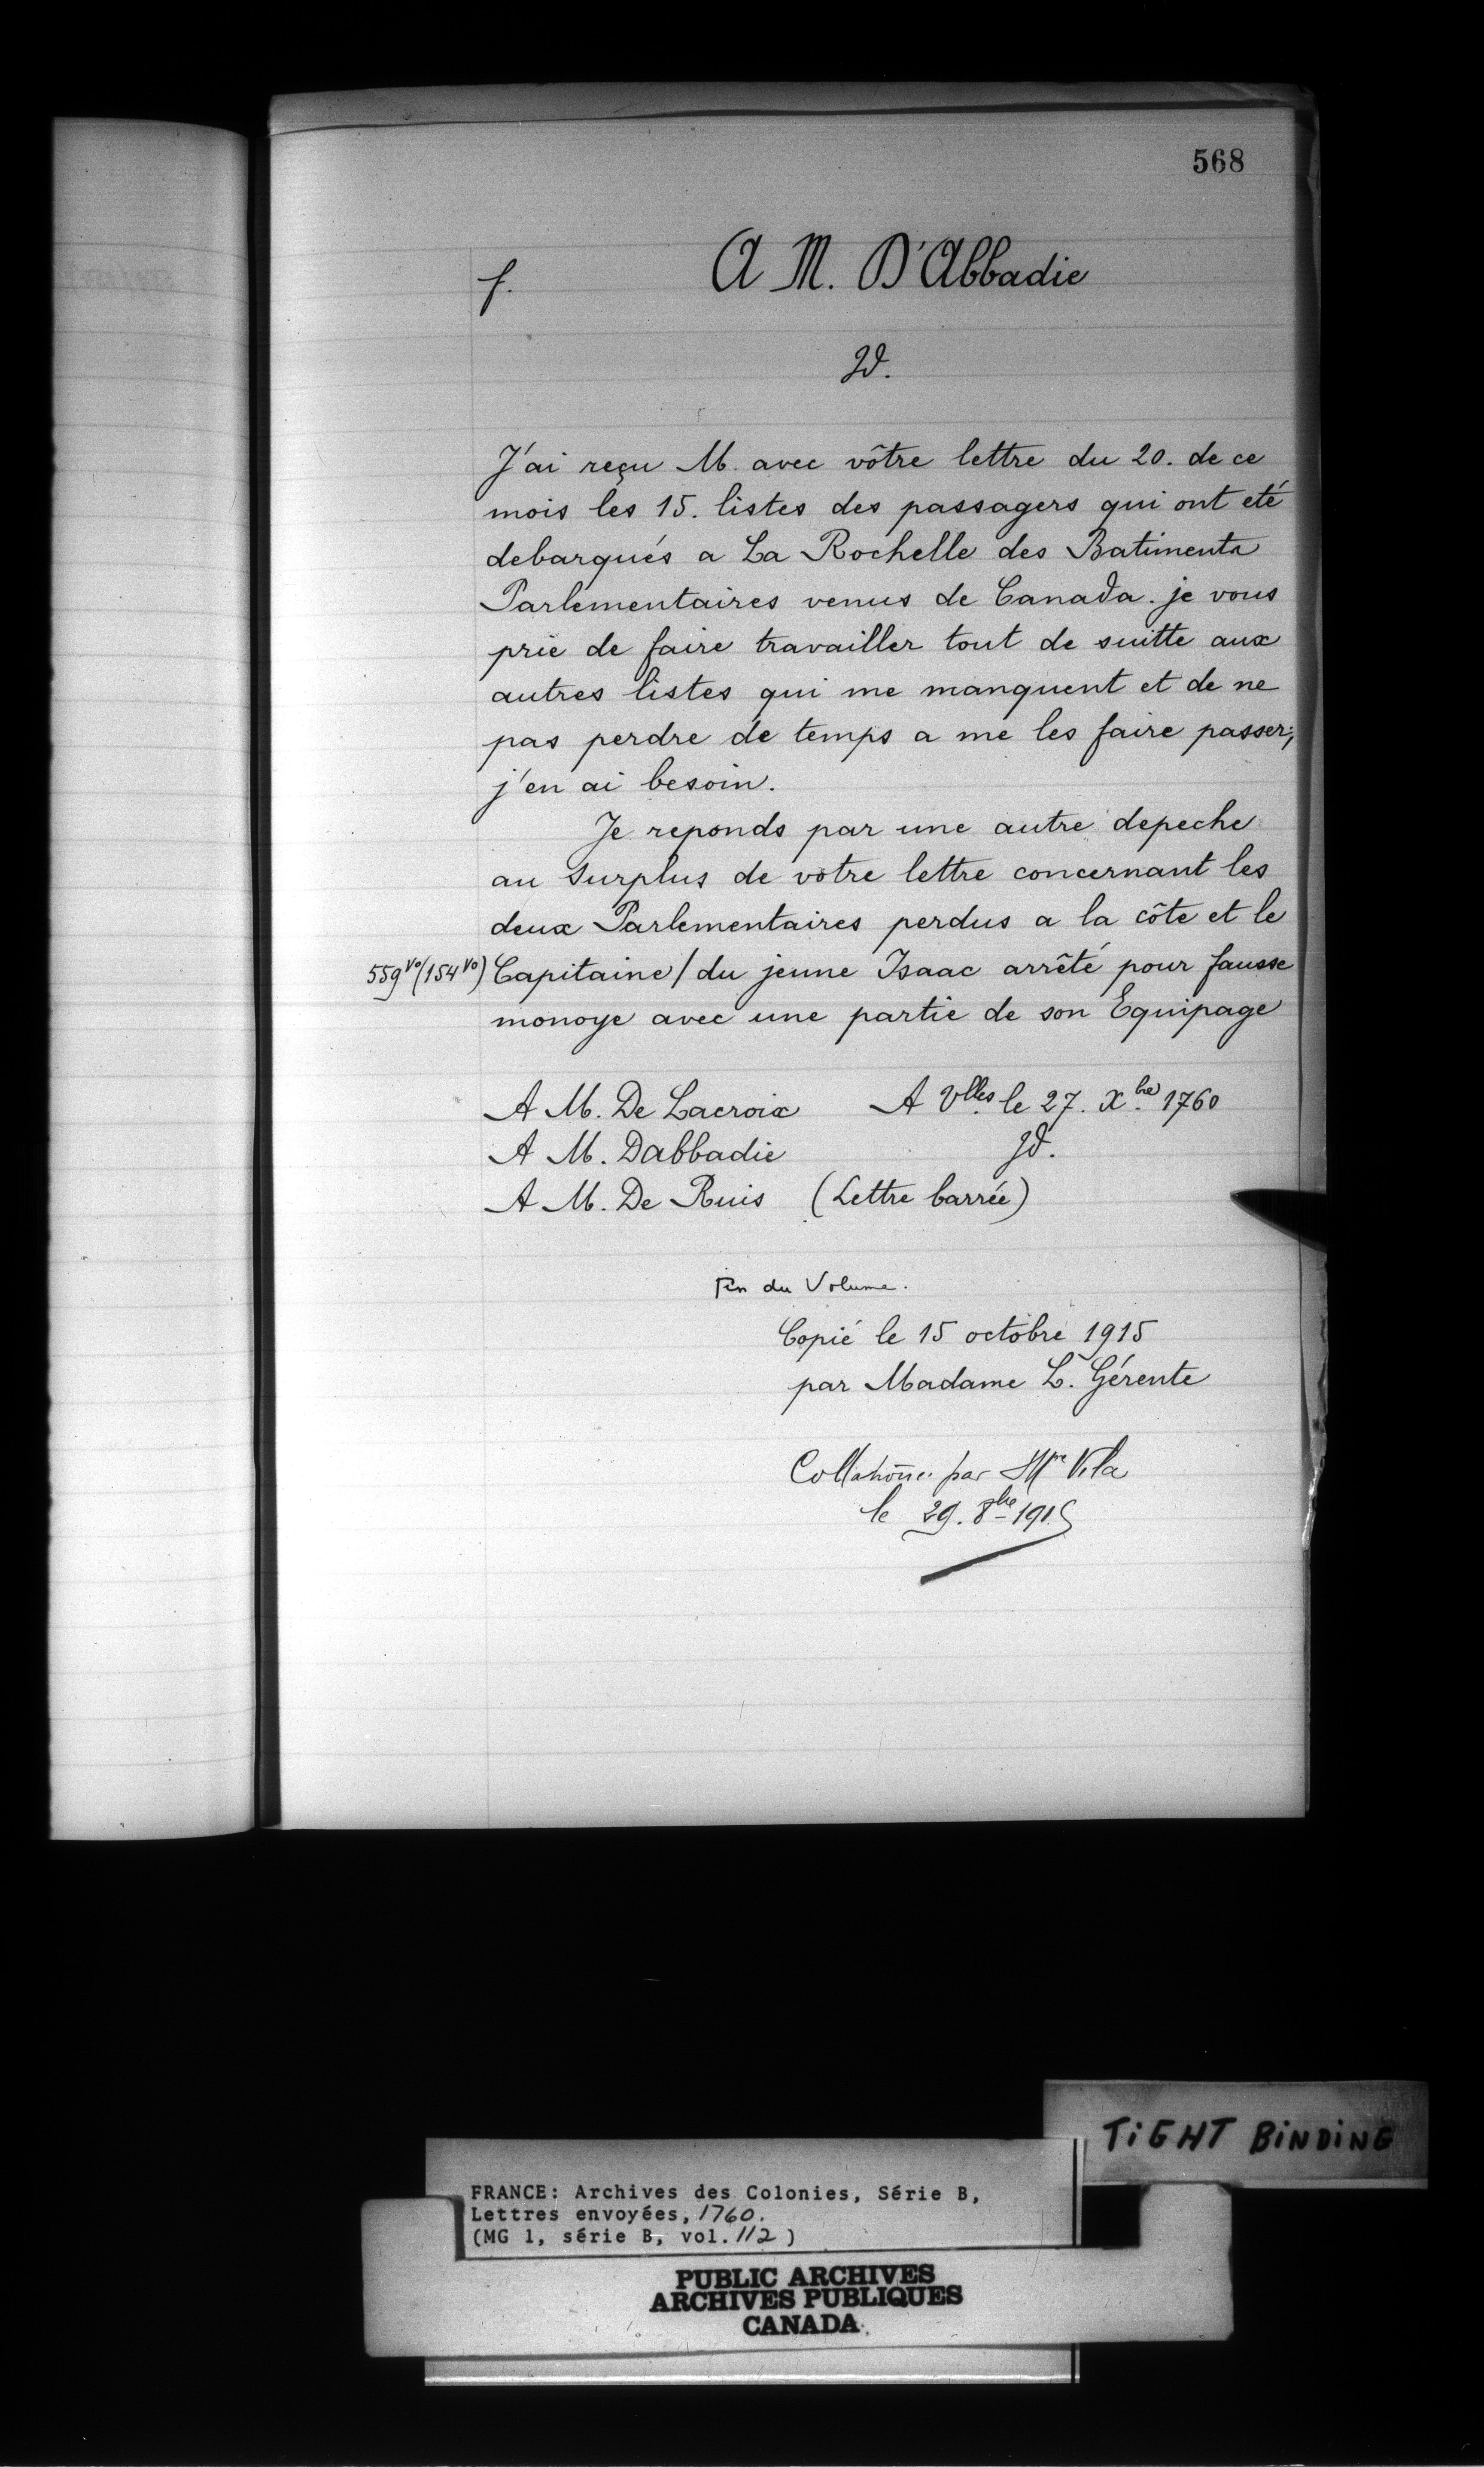 568
A M. D'Abbadie
f.
Id.
J'ai reçu M. avec vôtre lettre du 20. de ce
mois les 15. listes des passagers qui ont eté
debarqués a La Rochelle des Batiments
Parlementaires venus de Canada. je vous
prie de faire travailler tout de suitte aux
autres listes qui me manquent et de ne
pas perdre de temps a me les faire passer;
j'en ai besoin.
Je reponds par une autre depeche
au surplus de vôtre lettre concernant les
deux Parlementaires perdus a la côte et le
559 vo (154 vo) Capitaine / du jeune Isaac arrêté pour fausse
monoye avec une partie de son Equipage
A M. De Lacroix A Vlles le 27. Xbre 1760
A M. Dabbadie Id.
A M. De Ruis (Lettre barrée)
Fin du Volume.
Copié le 15 octobre 1915
par Madame L. Gérente
Collationné par Mme Vila
le 29. 8bre 1915
TIGHT BINDING
FRANCE: Archives des Colonies, Série B,
Lettres envoyées, 1760.
(MG 1, série B, vol. 112)
PUBLIC ARCHIVES
ARCHIVES PUBLIQUES
CANADA